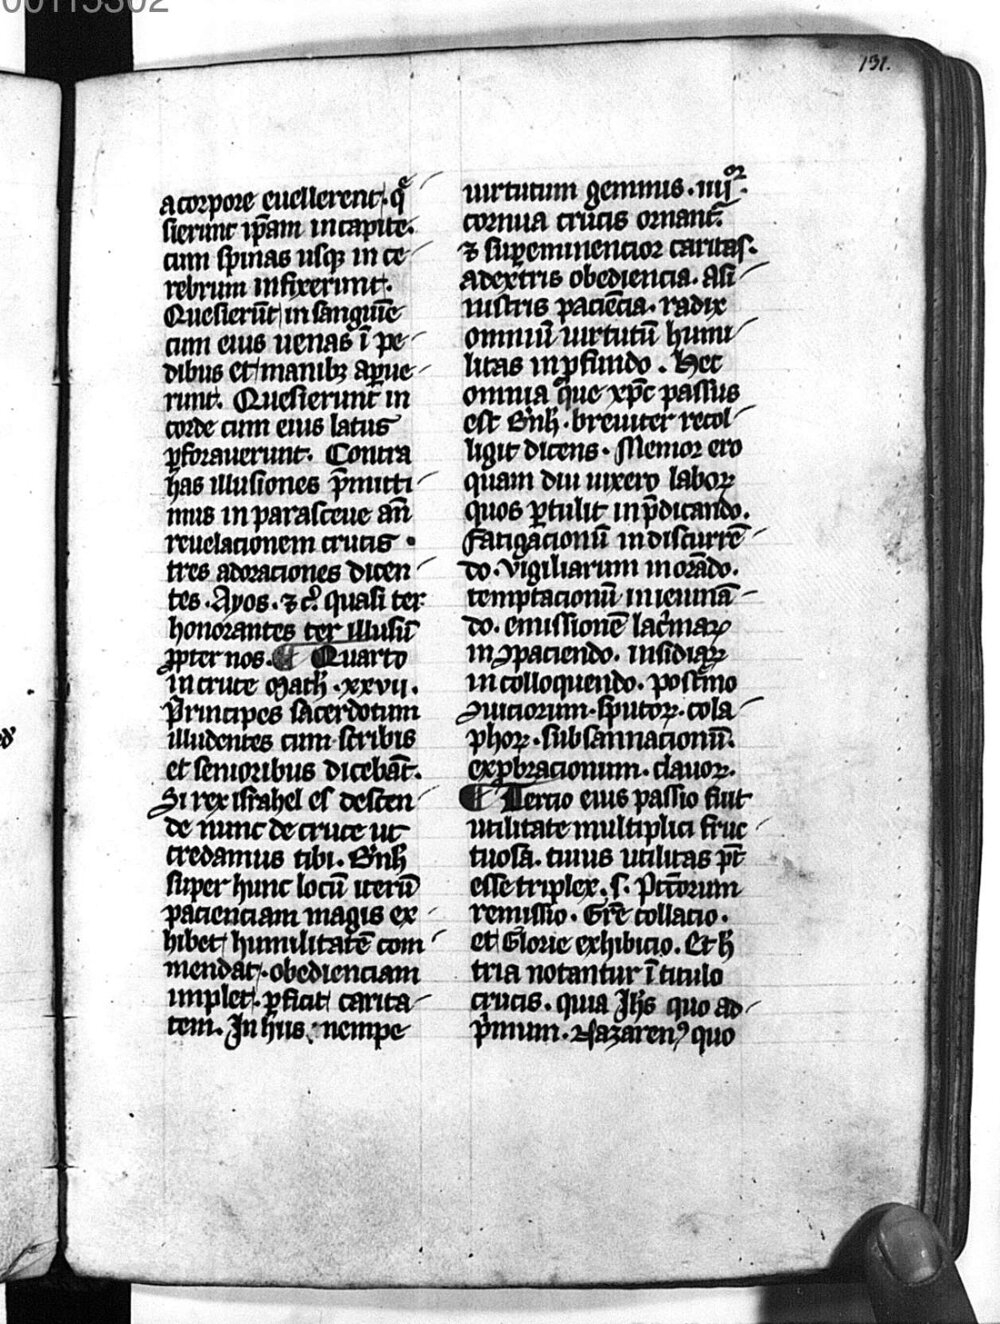 00113302
131.
a corpore euellerent. q̄
sierunt ip̄am in capite.
cum spinas usqꝫ in ce
rebrum infixerunt.
Quesierūt in sanguīe
cum eius uenas ī pe
dibus et manibꝫ aꝑue
runt. Quesierunt in
corde cum eius latus
ꝑforauerunt. Contra
has illusiones p̄mitti
mus in parasceue an̄
reuelacionem crucis.
tres adoraciones dicen
tes. Ayos. ⁊ c̄. quasi ter
honorantes ter illusū
ꝓpter nos. ¶ Quarto
in cruce Math̄. xxvii.
Principes sacerdotum
illudentes cum scribis
et senioribus dicebāt.
Si rex israhel es descen
de nunc de cruce ut
credamus tibi. B̾nh̄
super hunc locū iterū
pacienciam magis ex
hibet humilitatē com
mendat. obedienciam
implet. ꝑficit carita
tem. In hiis nempe
uirtutum gemmis. iiijᵒʳ.
cornua crucis ornant̾.
⁊ suꝑeminencior caritas.
a dextris obediencia. a si
nistris paciēcia. radix
omniū uirtutū humi
litas in ꝓfundo. Hec
omnia que xp̄c passus
est B̾nh̄. breuiter recol
ligit dicens. Memor ero
quam diu uixero laboꝝ
quos ꝑtulit in p̄dicando.
Fatigacionū in discurrē
do. vigiliarum in orādo.
temptacionū in ieiunā
do. emissionē lac̾maꝝ
in ꝯpaciendo. insidiaꝝ
in colloquendo. postᵉmo
ꝯuiciorum. sputoꝝ. cola
phoꝝ. subsannacionū.
exꝓbracionum. clauoꝝ.
¶ Tercio eius passio fuit
utilitate multiplici fruc
tuosa. cuius utilitas pt̄
esse triplex. s. Pcc̄orum
remissio. Gr̄e collacio.
et Glorie exhibicio. Et h̄
tria notantur ī titulo
crucis. quia Ih̄s quo ad
pͥmum. Nazarenꝰ quo